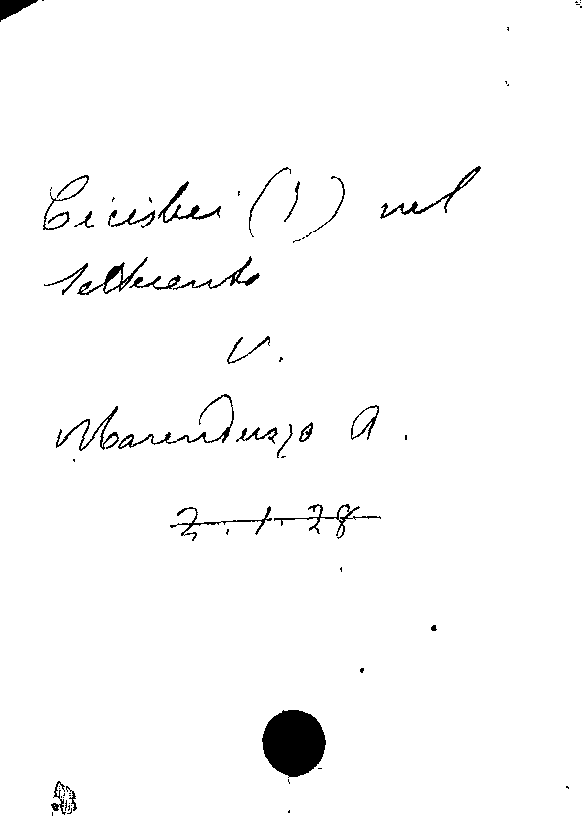 Cicisbei (I) nel
Settecento
V.
Marenduzzo A.
2.1.28